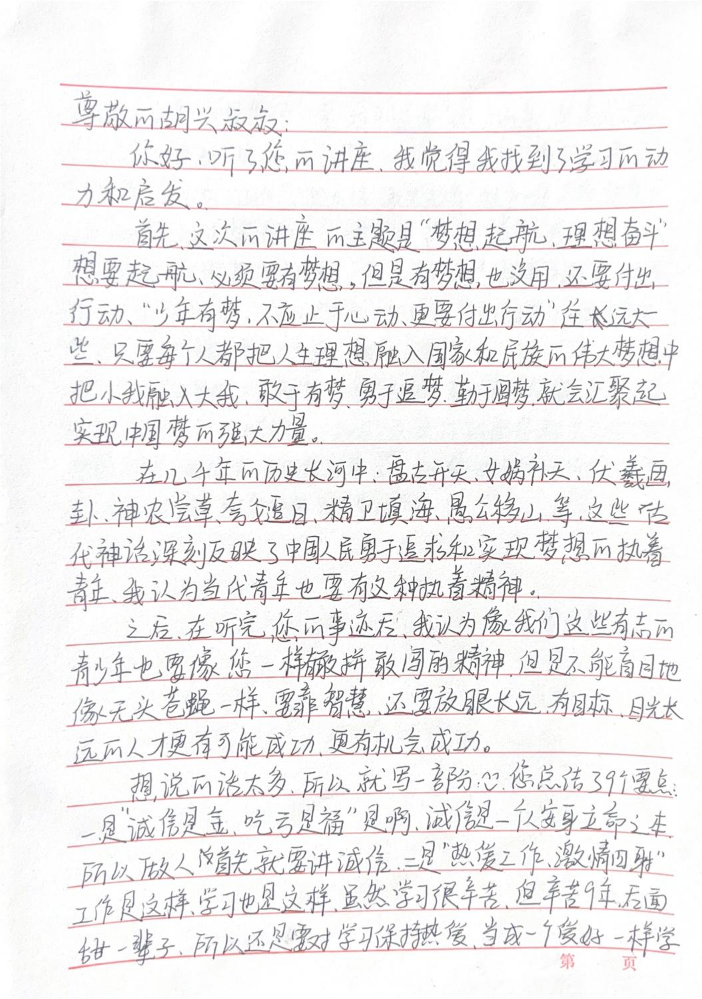 尊敬的胡兴叔叔：
你好，听了您的讲座、我觉得我找到了学习的动
力和启发。
首先、这次的讲座的主题是“梦想起航、理想奋斗”
想要起航、必须要有梦想，但是有梦想，也没用，还要付出
行动、“少年有梦，不应止于心动、更要付出行动”往长远大
些、只要每个人都把人生理想融入国家和民族的伟大梦想中
把小我融入大我，敢于有梦、勇于追梦、勤于圆梦，就会汇聚起
实现中国梦的强大力量。
在几千年的历史长河中：盘古开天、女娲补天、伏羲画
卦、神农尝草、夸父追日、精卫填海、愚公移山、等，这些“古
代神话，深刻反映了中国人民勇于追求和实现梦想的执着
青年、我认为当代青年也要有这种执着精神。
之后、在听完，您的事迹后、我认为像我们这些有志的
青少年也要像您一样有敢拼敢闯的精神，但是不能盲目地
像无头苍蝇一样、要靠智慧，还要放眼长远，有目标、目光长
远的人才更有可能成功、更有机会成功。
想，说的话太多、所以就写一部分：您总结了9个要点：
一是“诚信是金、吃亏是福”是啊，诚信是一个人安身立命之本
所以做人首先就要讲诚信，二是“热爱工作、激情四射”
工作是这样、学习也是这样、虽然学习很辛苦，但辛苦9年，后面
甜一辈子、所以还是要对学习保持热爱、当成一个爱好一样学
第 页